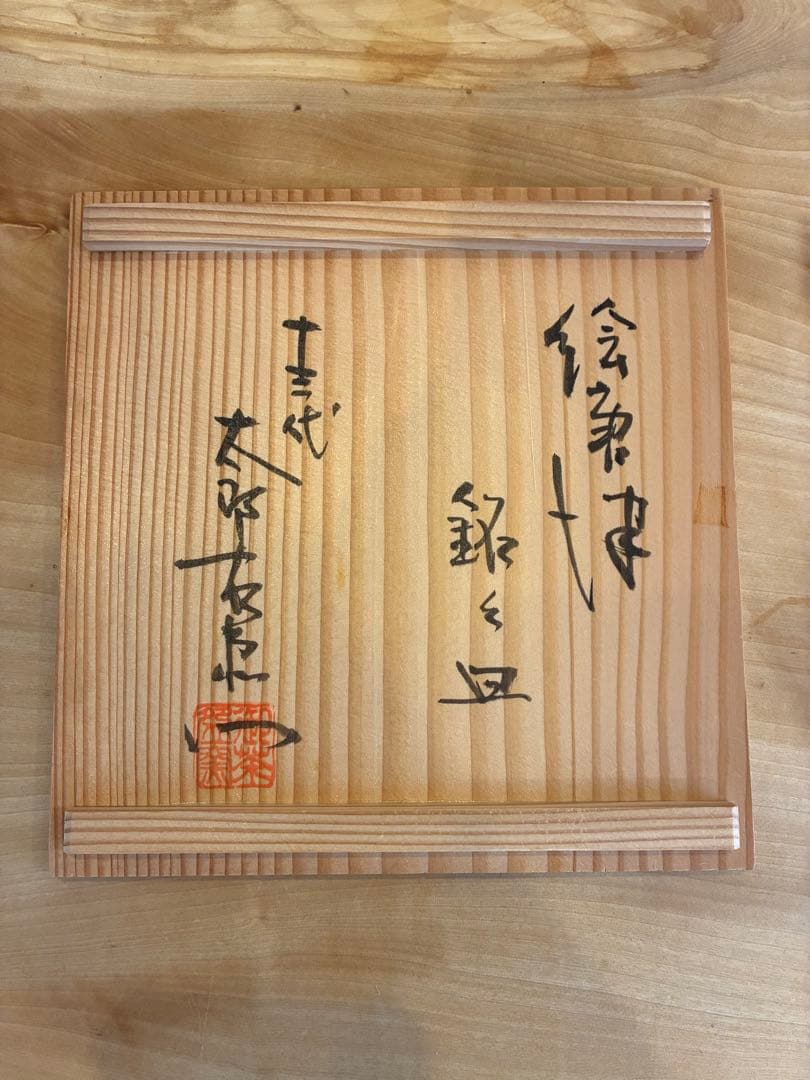 絵唐津
銘々皿
十三代
太郎右衛門
御茶